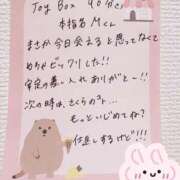 Joy Box 90分
本指名 Mくん
まさか今日会えると思ってなくて
めちゃビックリした!!
安定の差し入れありがとー!!
次の時は、さくらの
もっといじめてね?
仕返しするけど!!!